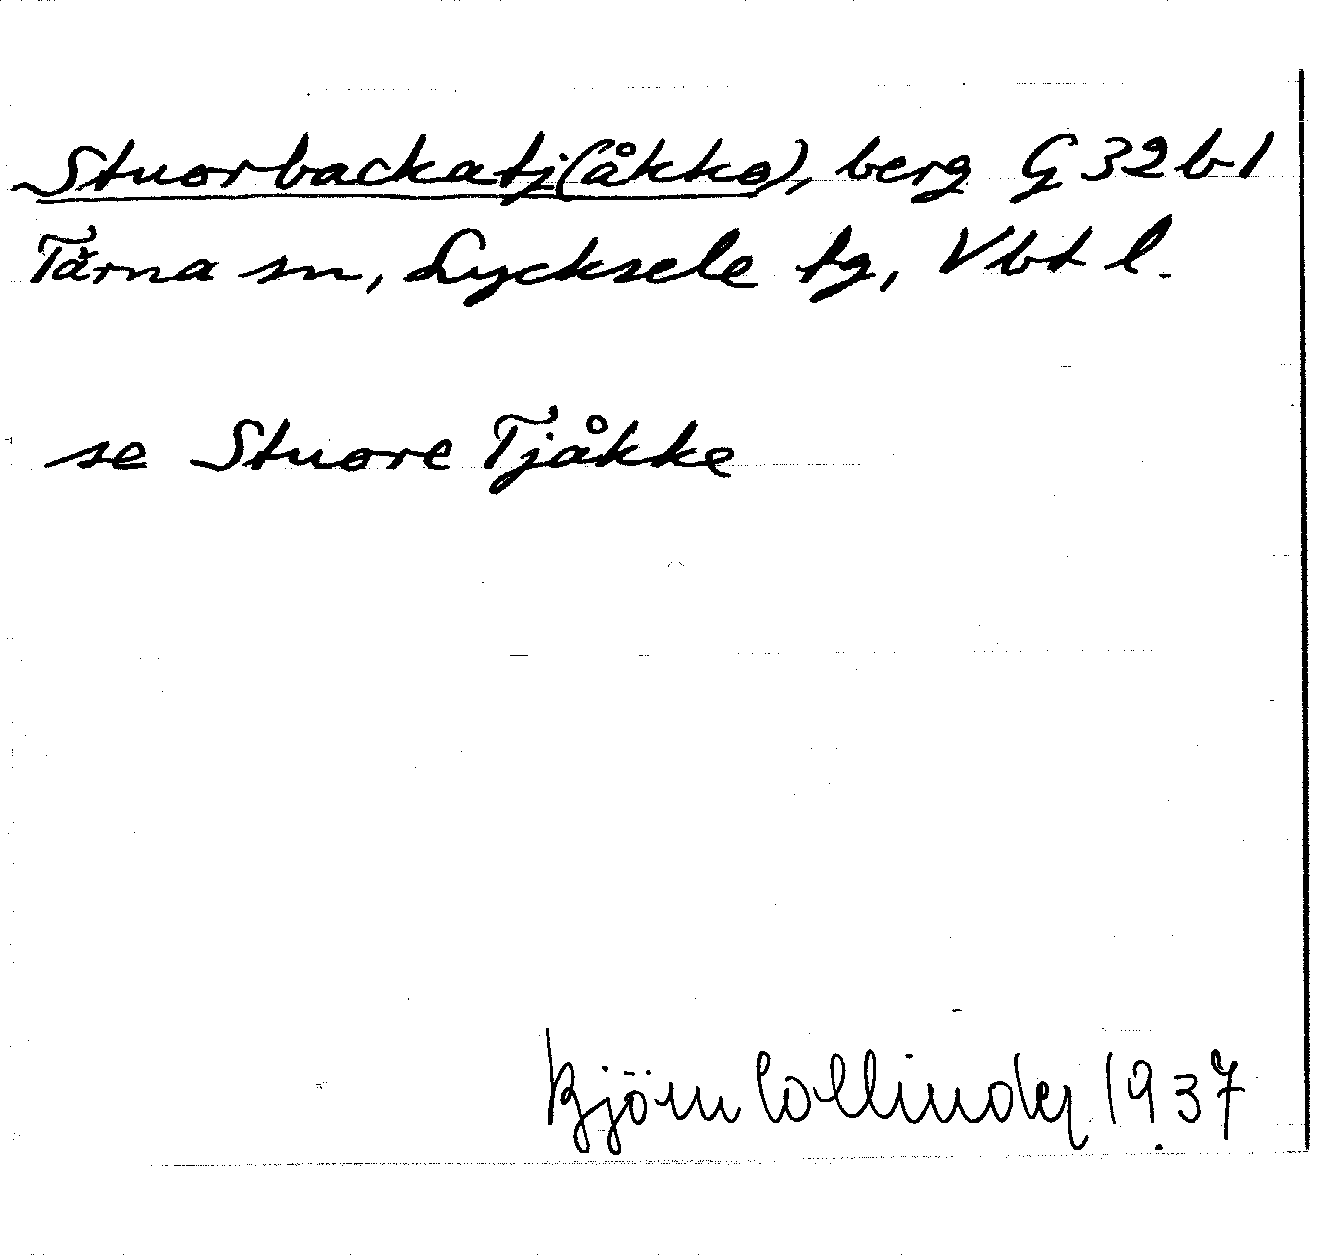 Stuorbackatj(åkko), berg G 32 b 1
Tärna sn, Lycksele lg, Vbt l.
se Stuore Tjåkke
Björn Collinder 1937